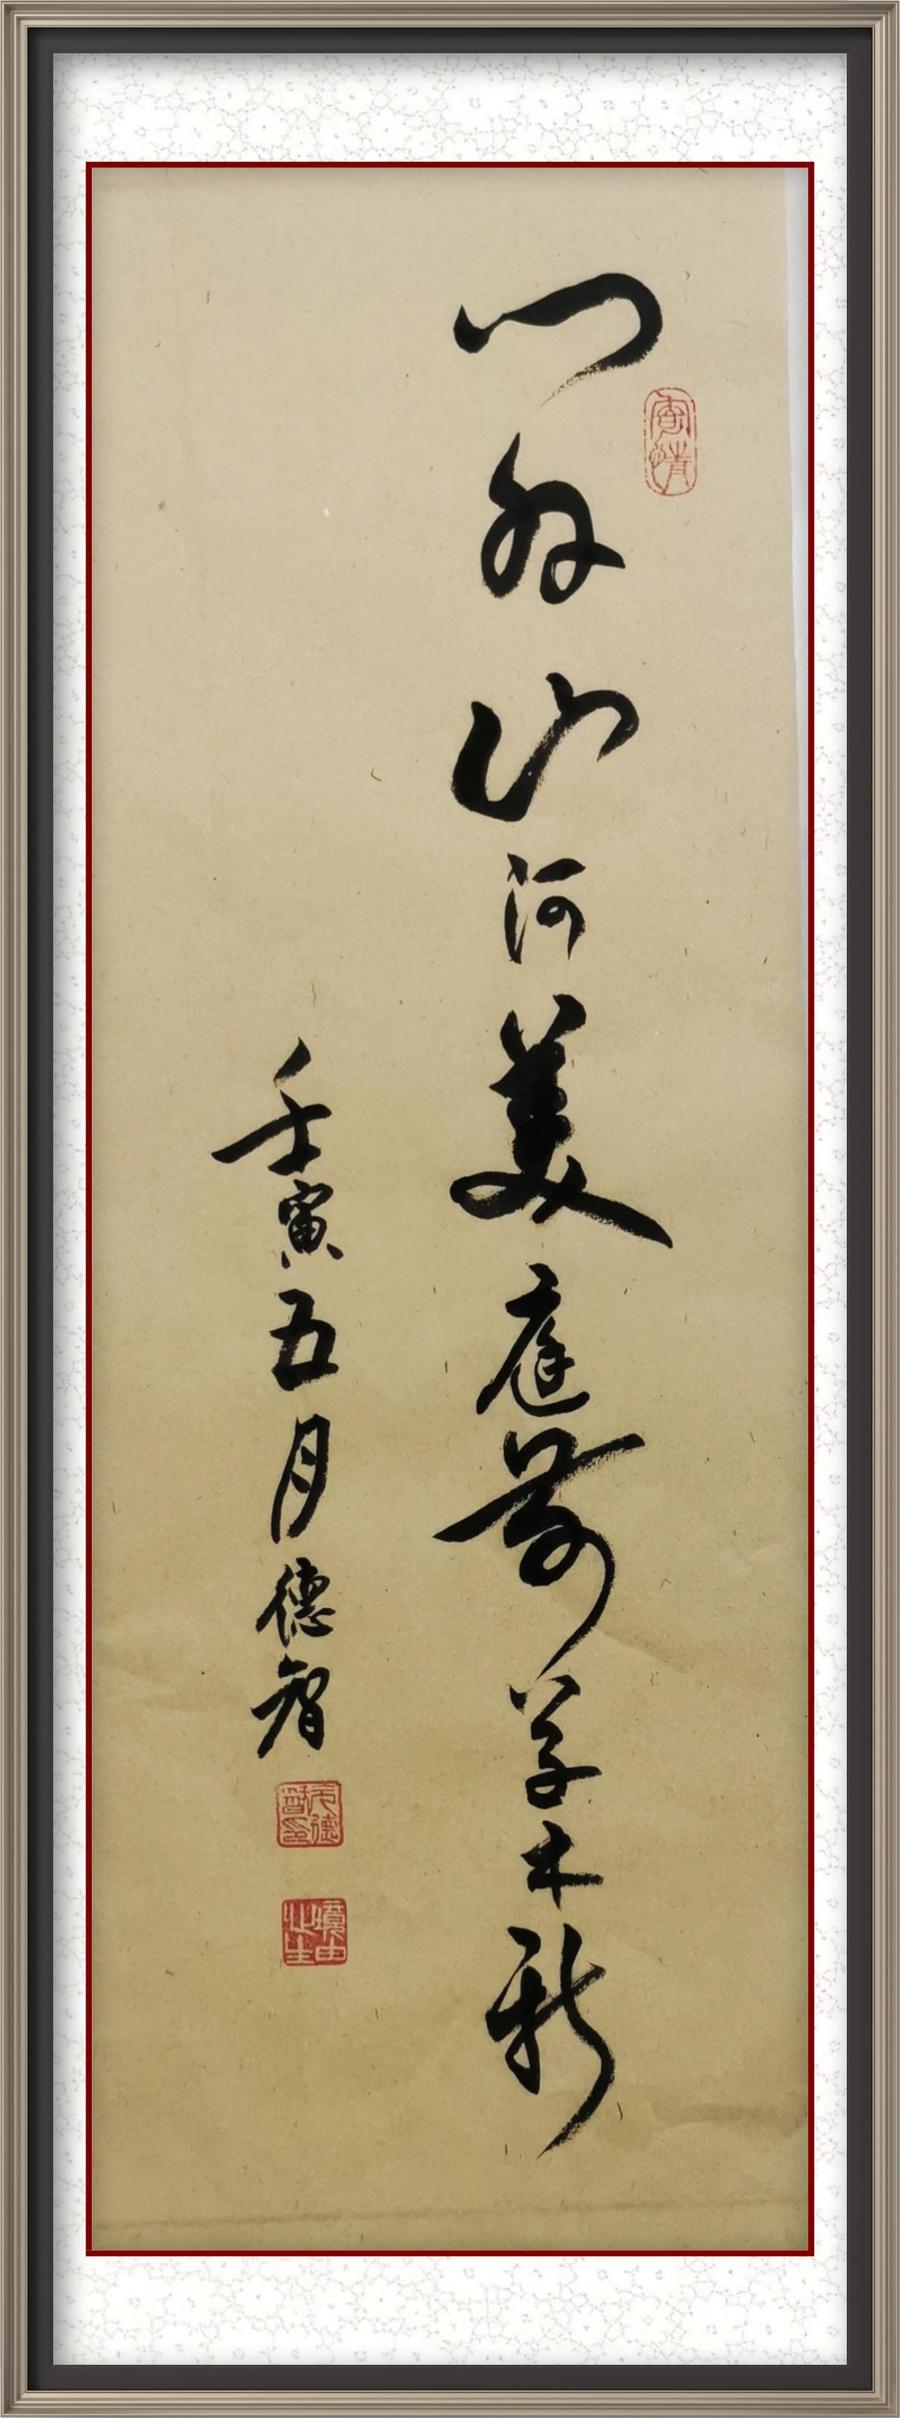 门外山河美庭前草木新
壬寅五月德智